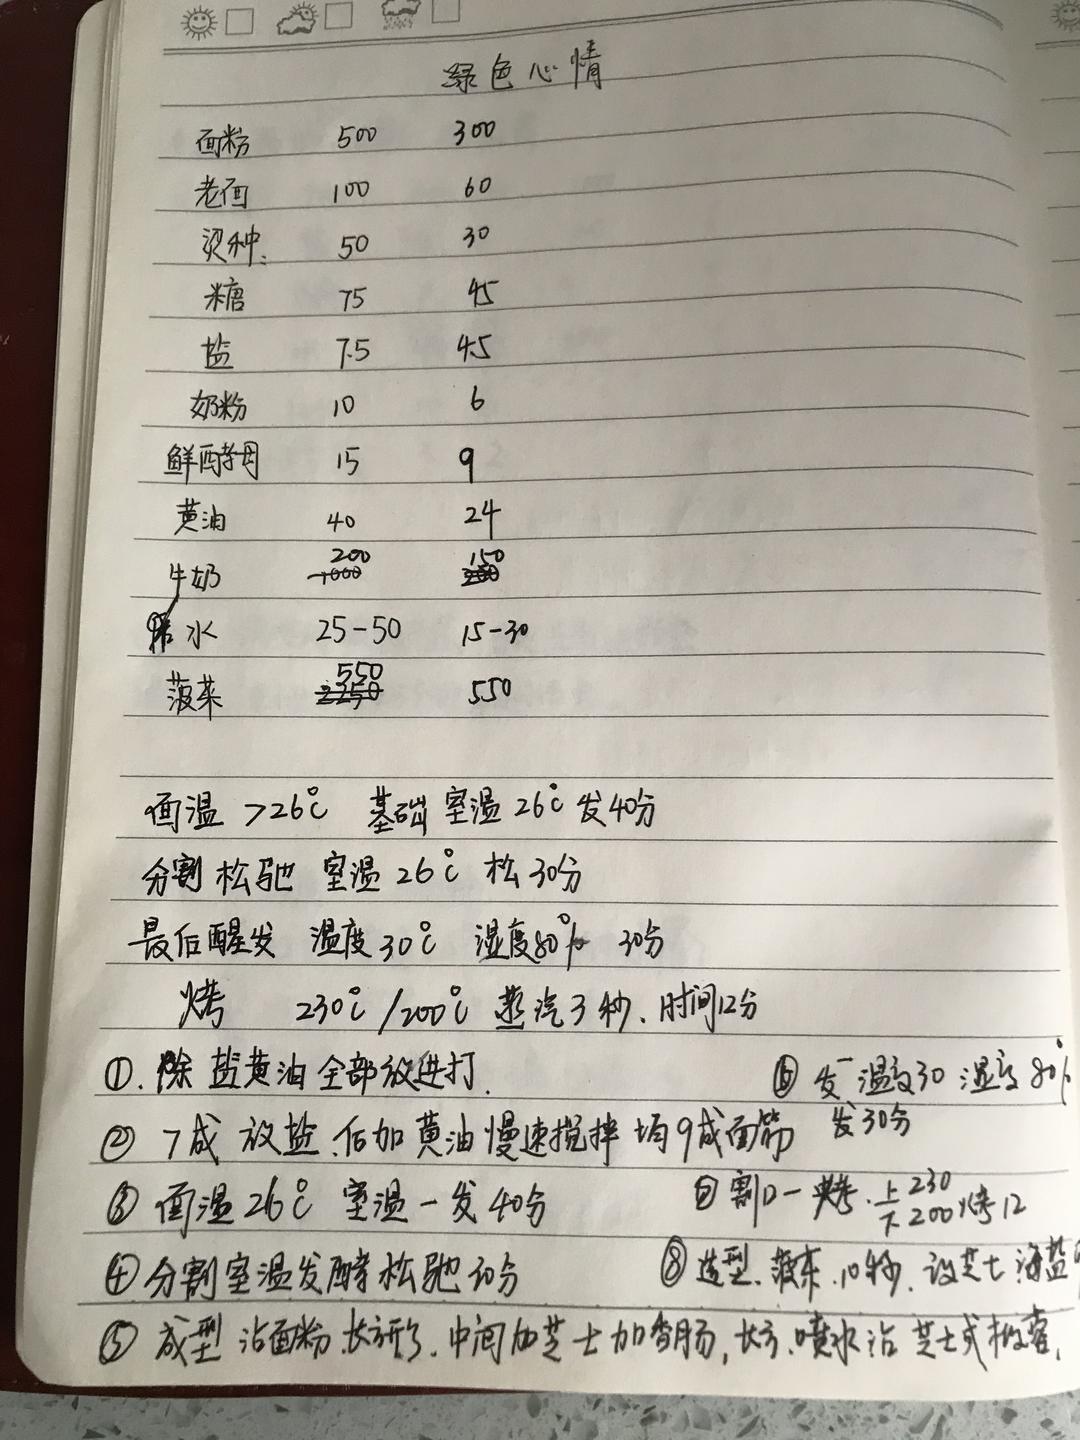 绿色心情
面粉 500 300
老面 100 60
烫种 50 30
糖 75 45
盐 7.5 4.5
奶粉 10 6
鲜酵母 15 9
黄油 40 24
200 150
牛奶 1000
水 25-50 15-30
550
菠菜 2250 550
面温 >26℃ 基础 室温26℃发40分
分割松驰 室温26℃ 松30分
最后醒发 温度30℃ 湿度80% 30分
烤 230℃/200℃ 蒸汽3秒、时间12分
①、除盐黄油全部放进打.
② 7成 放盐、后加黄油慢速搅拌均9成面筋
③ 面温26℃ 室温一发40分
④ 分割室温发酵松驰30分
⑤ 成型 沾面粉、长方形、中间加芝士加香肠,长方、喷水沾芝士或
⑥ 发 温度30 湿度80%
发30分
⑦ 割口一烤、上230
下200烤12
⑧ 造型、菠菜、10秒、芝士海盐